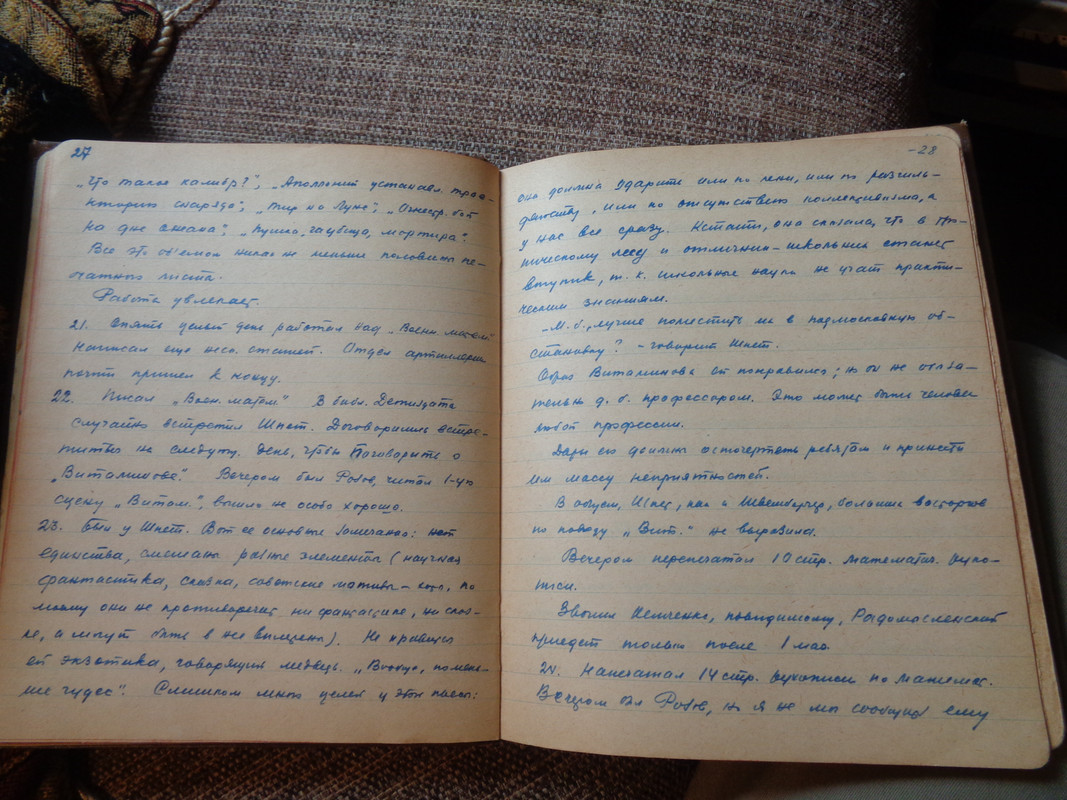 27
„Что такое калибр?“, „Аполлоний устанавл. трае-
кторию снаряда“, „Мир на Луне“, „Огнестр. бой
на дне океана“, „Пушка, гаубица, мортира“.
Все это об'емом никак не меньше половины пе-
чатного листа.
Работа увлекает.
21. Опять целый день работал над „Военн. матем.“
Написал еще неск. статей. Отдел артиллерии
почти пришел к концу.
22. Писал „Воен. матем.“ В библ. Детиздата
случайно встретил Шпет. Договорились встре-
титься на следующ. день, чтобы поговорить о
„Виталинове“. Вечером был Розов, читал 1-ую
сцену „Витал.“, вышло не особо хорошо.
23. Был у Шпет. Вот ее основные замечания: нет
единства, смешаны разные элементы (научная
фантастика, сказка, советские мотивы – хотя, по
моему они не противоречат ни фантастике, ни сказ-
ке, а могут быть в нее вкраплены). Не нравится
ей экзотика, говорящий медведь. „Вообще, помень-
ше чудес“. Слишком много целей у этой пьесы:
-28
она должна ударить или по лени, или по разгиль-
дяйству, или по отсутствию коллективизма, а
у нас все сразу. Кстати, она сказала, что в тро-
пическому лесу и отличник-школьник станет
втупик, т. к. школьные науки не учат практи-
ческим знаниям.
– М. б., лучше поместить их в подмосковную об-
становку? – говорит Шпет.
Образ Виталинова ей понравился; но он не обяза-
тельно д. б. профессором. Это может быть человек
любой профессии.
Дары его должны осточертеть ребятам и принести
им массу неприятностей.
В общем, Шпет, как и Швембергер, больших восторгов
по поводу „Вит.“ не выразила.
Вечером перепечатал 10 стр. математич. руко-
писи.
Звонил Немченко, повидимому, Радомысленский
приедет только после 1 мая.
24. Напечатал 14 стр. рукописи по математ.
Вечером был Розов, но я не мог сообщить ему